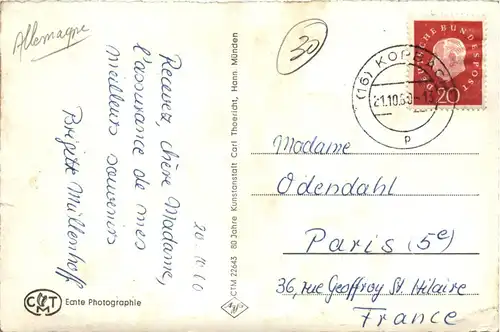 Allemagne
30
Recevez, chère Madame,
l'assurance de mes
meilleurs souvenirs
Brigitte Müllenhoff
20.10.60
CTM 22643 80 Jahre Kunstanstalt Carl Thoericht, Hann. Münden
CTM
Echte Photographie
DEUTSCHE BUNDESPOST
20
(16)
21.10.60
p
Madame
Odendahl
Paris (5e)
36, rue Geoffroy St. Hilaire
France